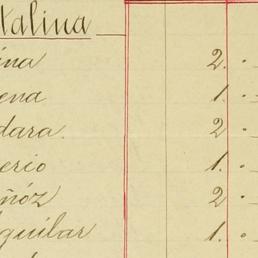 talina
ina 2.
ena 1.
dara. 2
erio 1.
uñóz 2
guilar 1.